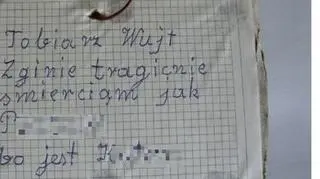 Tobiarz Wujt
Zginie tragicnie
smierciom jak
P
bo jest K